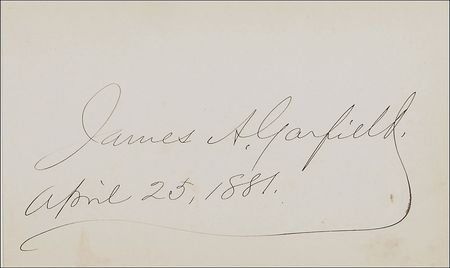 James A. Garfield.
April 25, 1881.